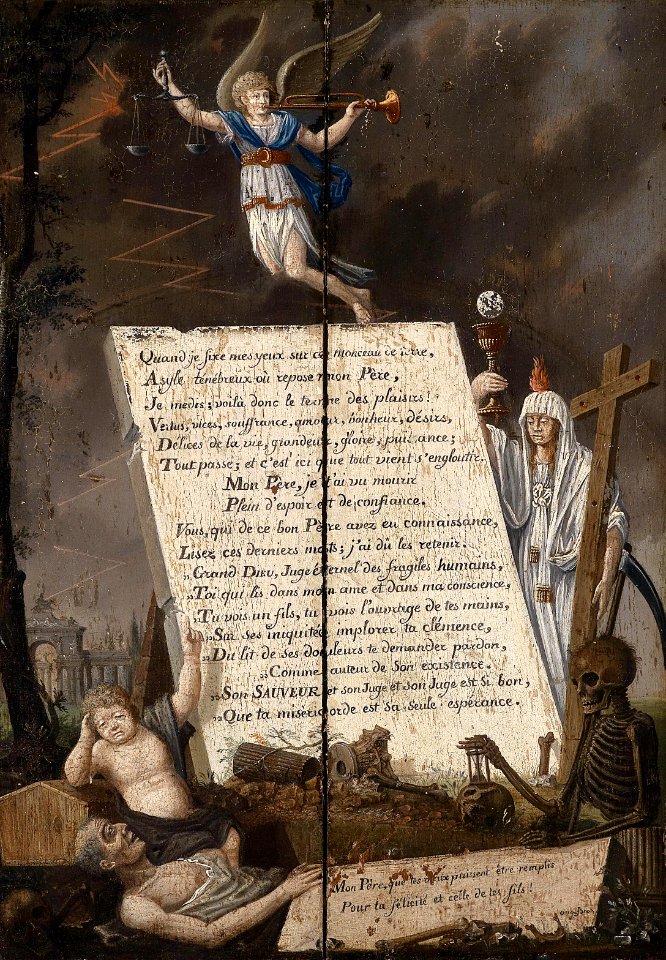 Quand je fixe mes yeux sur ce monceau de terre,
Azyle ténébreux où repose mon Père,
Je me dis; voilà donc le terme des plaisirs!
Vertus, vices, souffrance, amour, bonheur, désirs,
Délices de la vie, grandeur, gloire, puissance;
Tout passe; et c'est ici que tout vient s'engloutir.
Mon Père, je t'ai vu mourir
Plein d'espoir et de confiance.
Vous, qui de ce bon Père avez eu connaissance,
Lisez ces derniers mots; j'ai dû les retenir.
„Grand Dieu, Juge éternel des fragiles humains,
„Toi qui lis dans mon ame et dans ma conscience,
„Tu vois un fils, tu vois l'ouvrage de tes mains,
„Sur ses iniquités implorer ta clémence,
„Du lit de ses douleurs te demander pardon,
„Comme auteur de son existence.
„Son SAUVEUR est son Juge et son Juge est si bon,
„Que ta miséricorde est sa seule espérance.
Mon Père, que tes vœux puissent être remplis
Pour ta félicité et celle de tes fils!